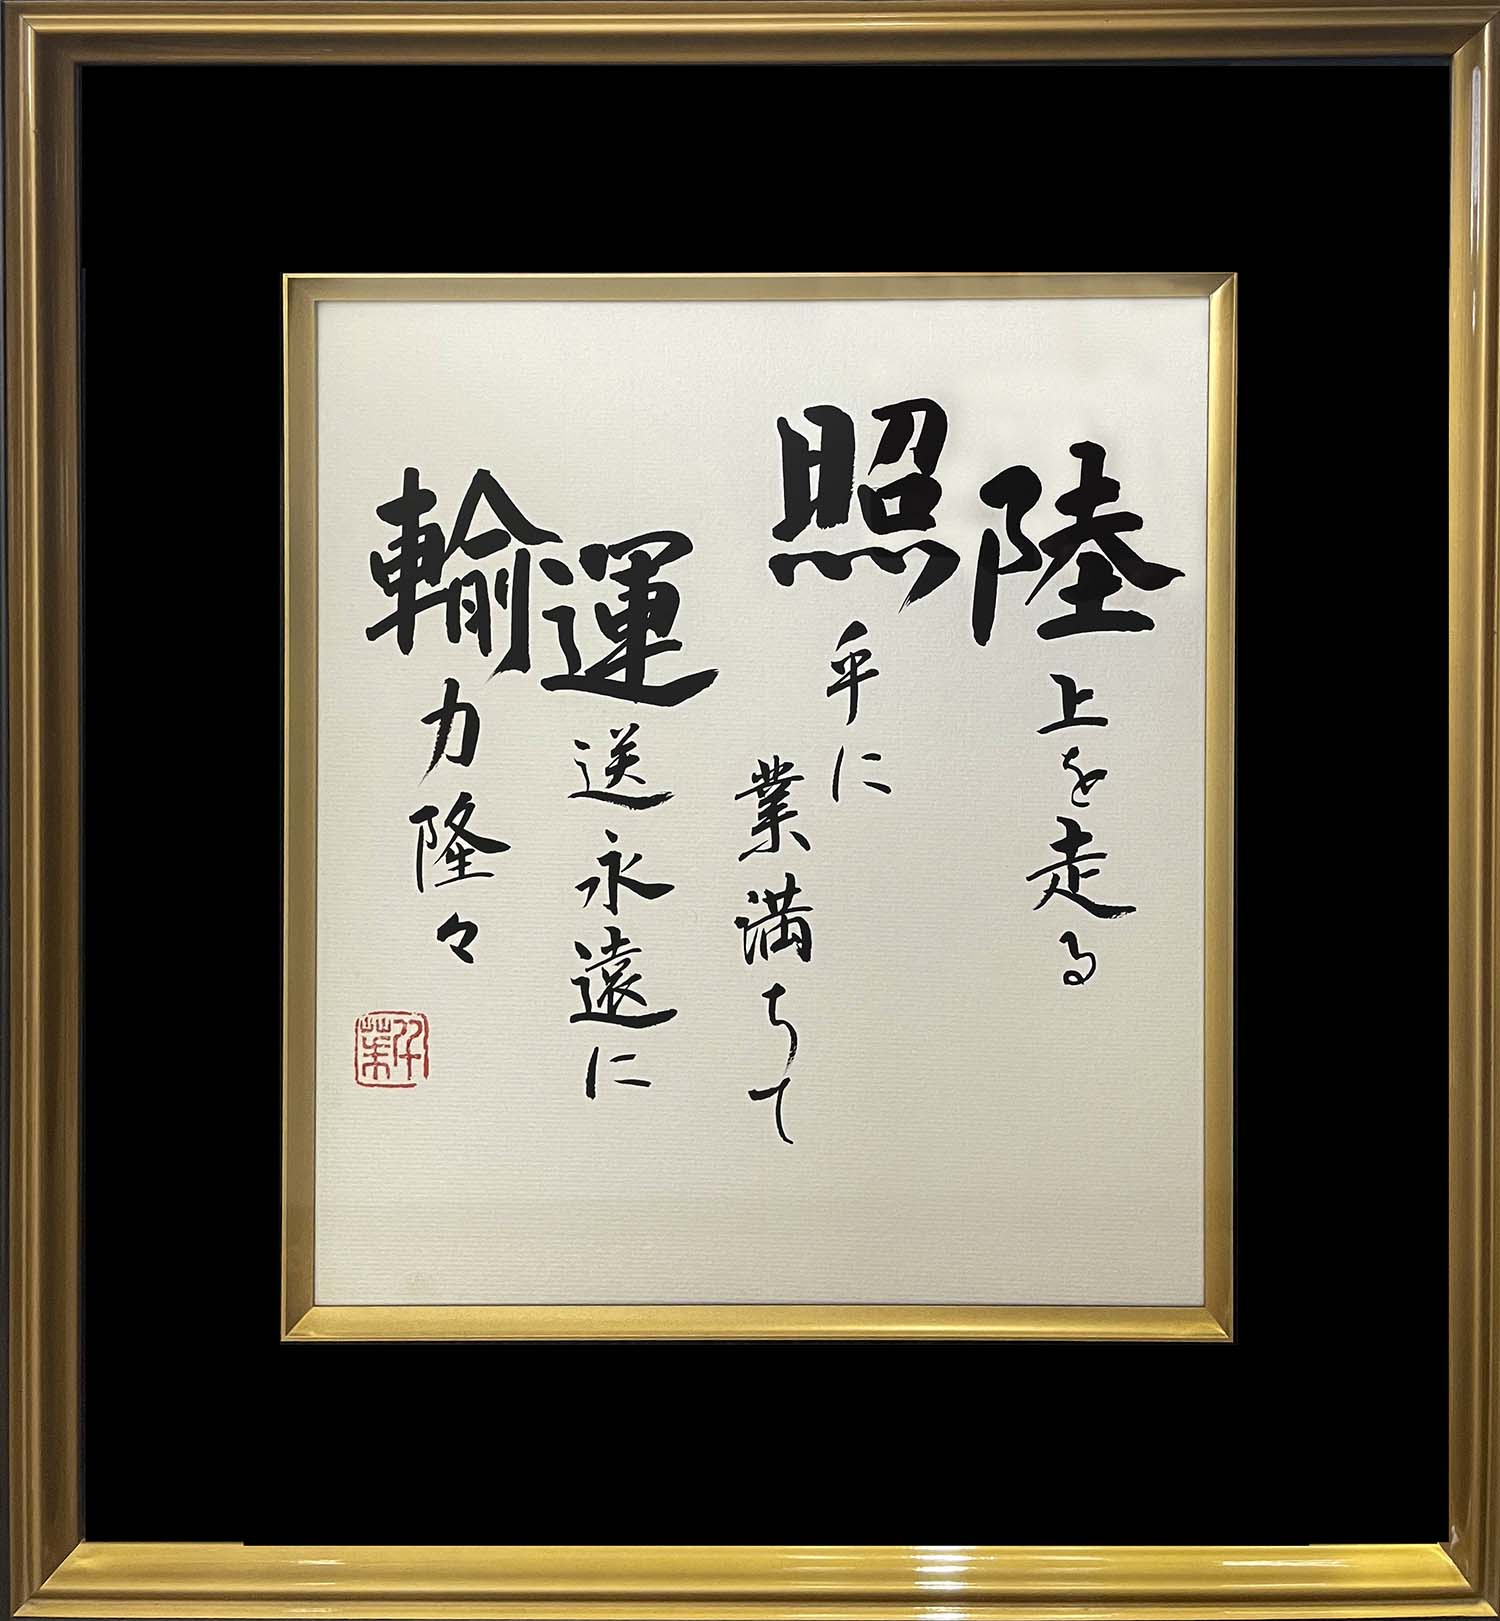 陸上を走る
照平に
業満ちて
運送永遠に
輸力隆々